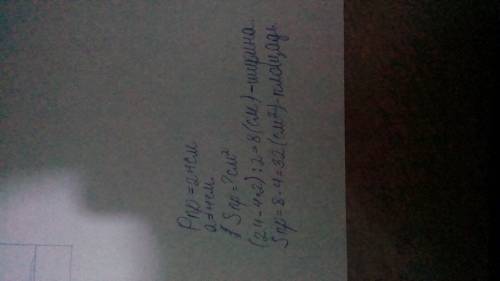 Pпр=24см
a=4см
Sпр=?см²
(24-4·2):2=8(см)-ширина.
Sпр=8·4=32(см²)-площадь